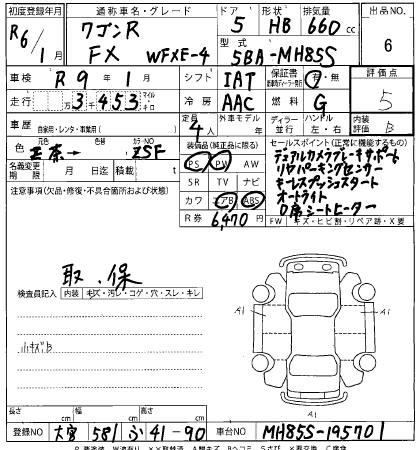 初度登録年月 通称車名・グレード ドア 形状 排気量 出品NO
R6/1月 ワゴンR FX WFXE-4 5 HB 660cc 6
型式 5BA-MH85S
車検 R9年1月 シフト IAT 保証書 有・無 評価点
走行 3,453 マイル キロ 冷房 AAC 燃料 G 5
車歴 自家用・レンタ・事業用( ) 定員 4人 外車モデル ディーラー 並行 ハンドル 左・右 内装評価 B
色 元色 → 色替 カラーNO ZSF
装備品(純正品に限る) セールスポイント(正常に機能するもの)
名義変更期限 月 日 積載 t
PS PW AW
SR TV ナビ
カワ エアB ABS
R券 6,470円
デュアルカメラブレーキサポート
リヤパーキングセンサー
キーレスプッシュスタート
オートライト
D席シートヒーター
FW キズ・ヒビ割・リペア跡・X要
注意事項(欠品・修復・不具合箇所および状態)
取・保
検査員記入 内装 キズ・汚レ・コゲ・穴・スレ・キレ
小キズB
A1
A1
A1
長さ cm 幅 cm 高さ cm
登録NO 大宮 581 ふ 41-90 車台NO MH85S-195701